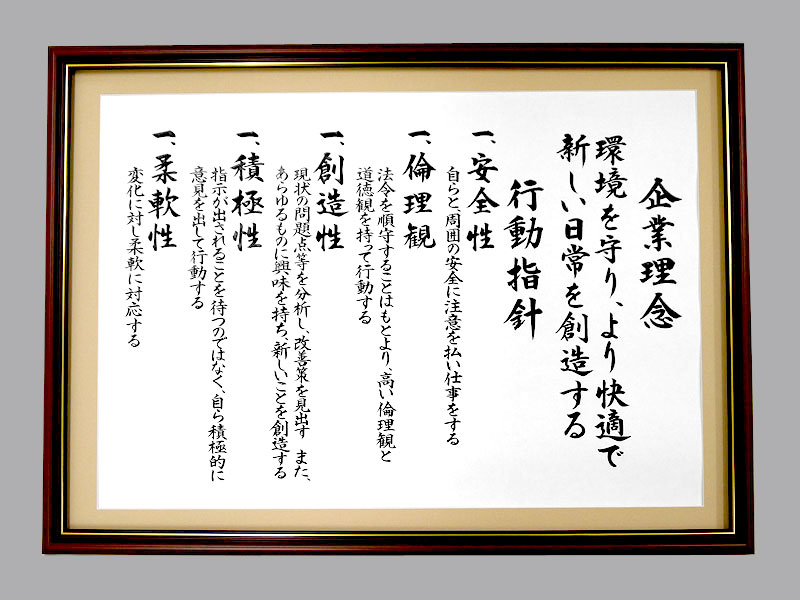 企業理念
環境を守り、より快適で
新しい日常を創造する
行動指針
一、安全性
自らと、周囲の安全に注意を払い仕事をする
一、倫理観
法令を順守することはもとより、高い倫理観と
道徳観を持って行動する
一、創造性
現状の問題点等を分析し、改善策を見出す また、
あらゆるものに興味を持ち、新しいことを創造する
一、積極性
指示が出されることを待つのではなく、自ら積極的に
意見を出して行動する
一、柔軟性
変化に対し柔軟に対応する